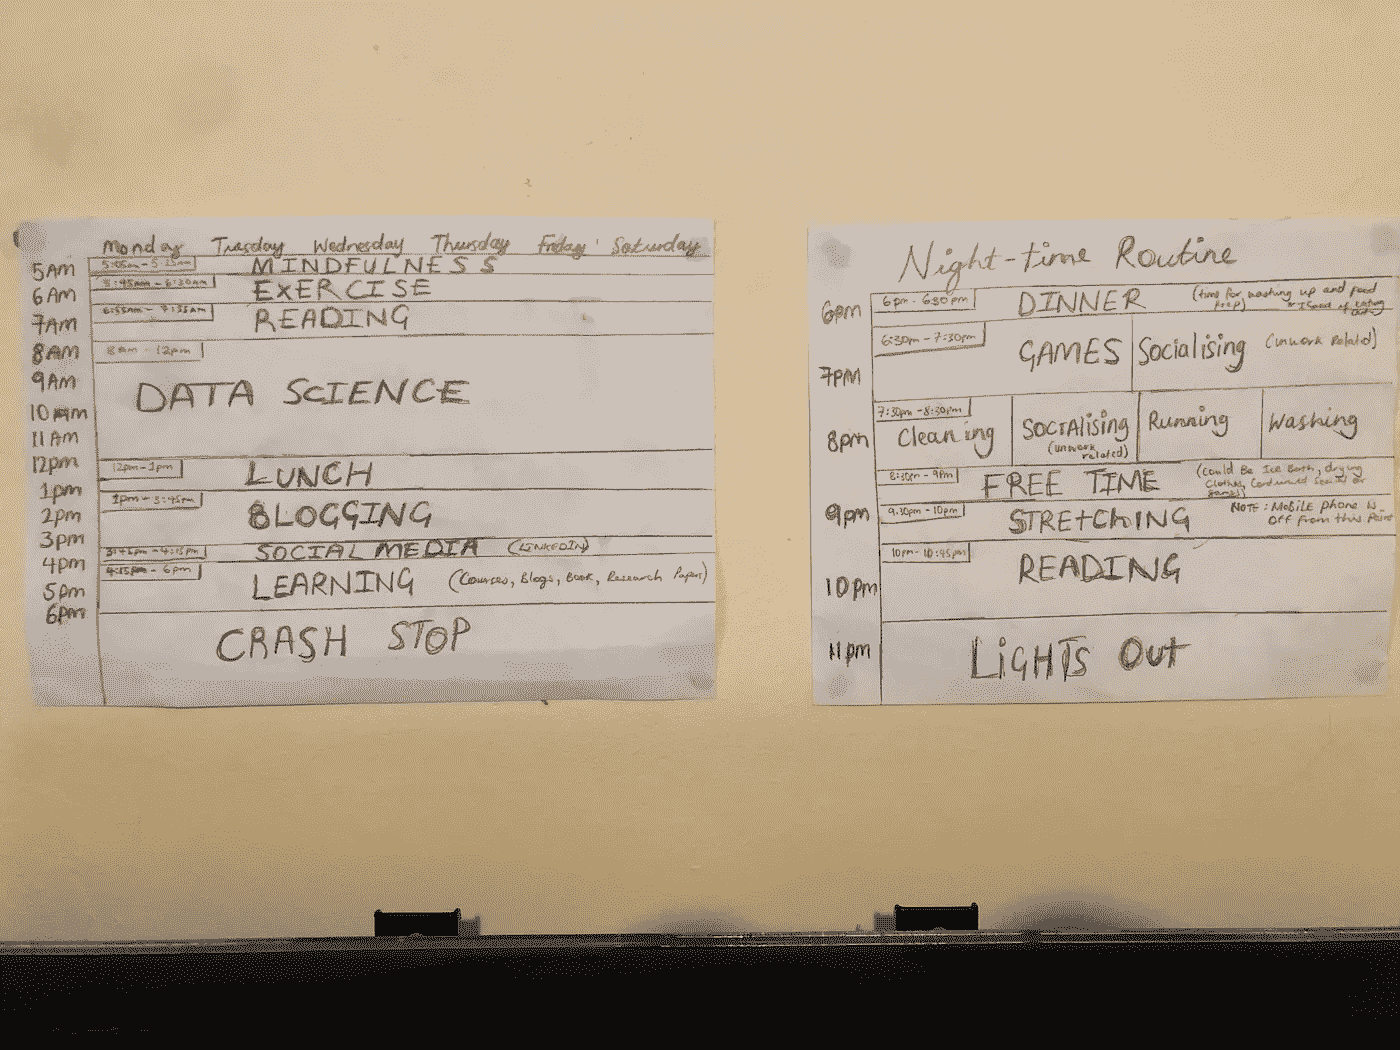 Monday Tuesday Wednesday Thursday Friday Saturday
5AM
5:05am - 5:35am MINDFULNESS
6AM
5:45am - 6:30am EXERCISE
7AM
6:55am - 7:55am READING
8AM
8am - 12pm
9AM
DATA SCIENCE
10am
11Am
12pm
12pm - 1pm LUNCH
1pm
1pm - 3:45pm BLOGGING
2pm
3pm
3:45pm - 4:15pm SOCIAL MEDIA (LINKEDIN)
4pm
4:15pm - 6pm LEARNING (Courses, Blogs, Book, Research Papers)
5pm
6pm
CRASH STOP
Night-time Routine
6pm
6pm - 6:30pm DINNER (time for washing up and food
prep)
6:30pm - 7:30pm GAMES Socialising (unwork Related)
7PM
7:30pm - 8:30pm
8pm
Cleaning SOCIAlising Running Washing
(unwork
related)
8:30pm - 9pm FREE TIME (Could Be Ice Bath, drying
Clothes, Continued Social or
games)
9pm
9.30pm - 10pm STREtChING NOTE: Mobile phone is
Off from this Point
10pm - 10:45pm READING
10pm
11pm
LiGHTS Out